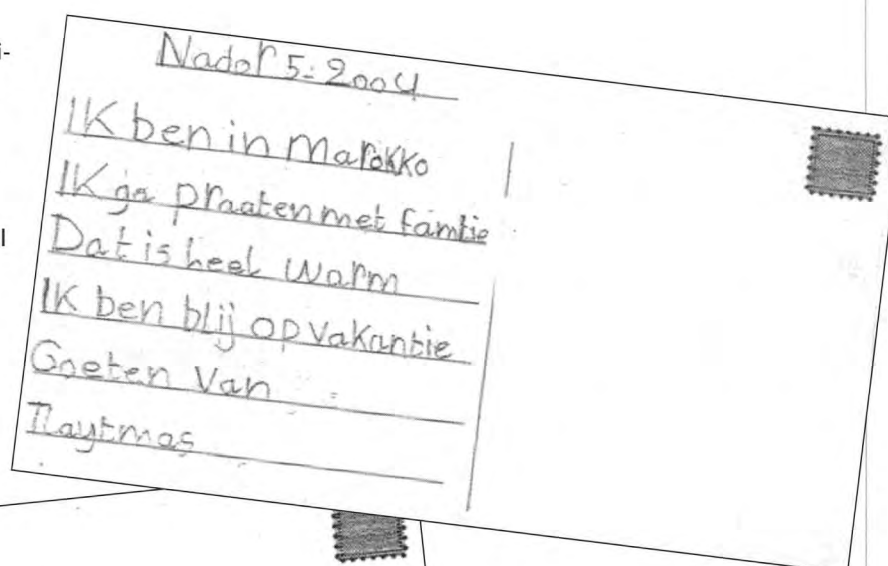 Nador 5-2004
IK ben in Marokko
IK ga praaten met famtie
Dat is heel warm
IK ben blij op vakantie
Goeten van